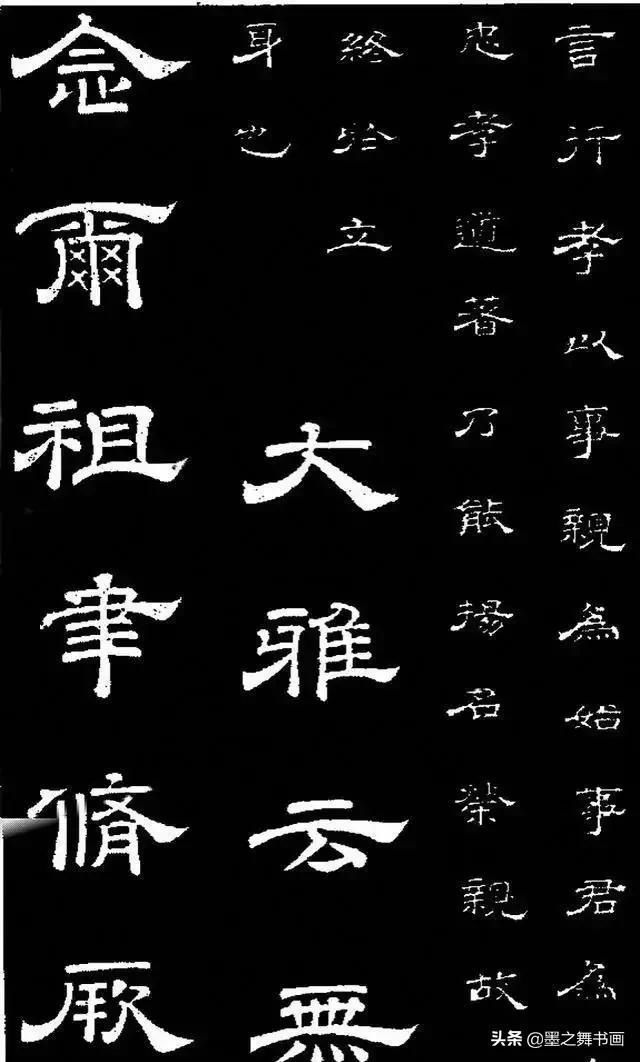 言行孝以事親為始事君為
忠孝道著乃能揚名榮親故
終於立
身也
大雅云無
念爾祖聿脩厥
头条 @墨之舞书画